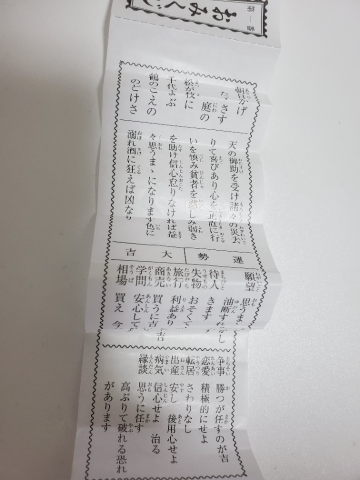 第一番
おみくじ
朝日かげ
たゞさす
庭の
松が枝に
千代よぶ
鶴のこえの
のどけさ
天の御助を受け諸々の災去
りて喜びあり心を正直に行
いを慎み貧者を悲しみ弱き
を助け信心怠りなければ益
々思うまゝになります色に
溺れ酒に狂えば凶なり
運勢 大吉
願望 思うまゝ
油断すれば
待人 きます
失物 おそくで
旅行 利益あり
商売 買うに吉
学問 安心して
相場 買え 今
争事 勝つが任すのが吉
恋愛 積極的にせよ
転居 さわりなし
出産 安し 後用心せよ
病気 信心せよ 治る
縁談 思うに任す
高ぶりて破れる恐れ
があります